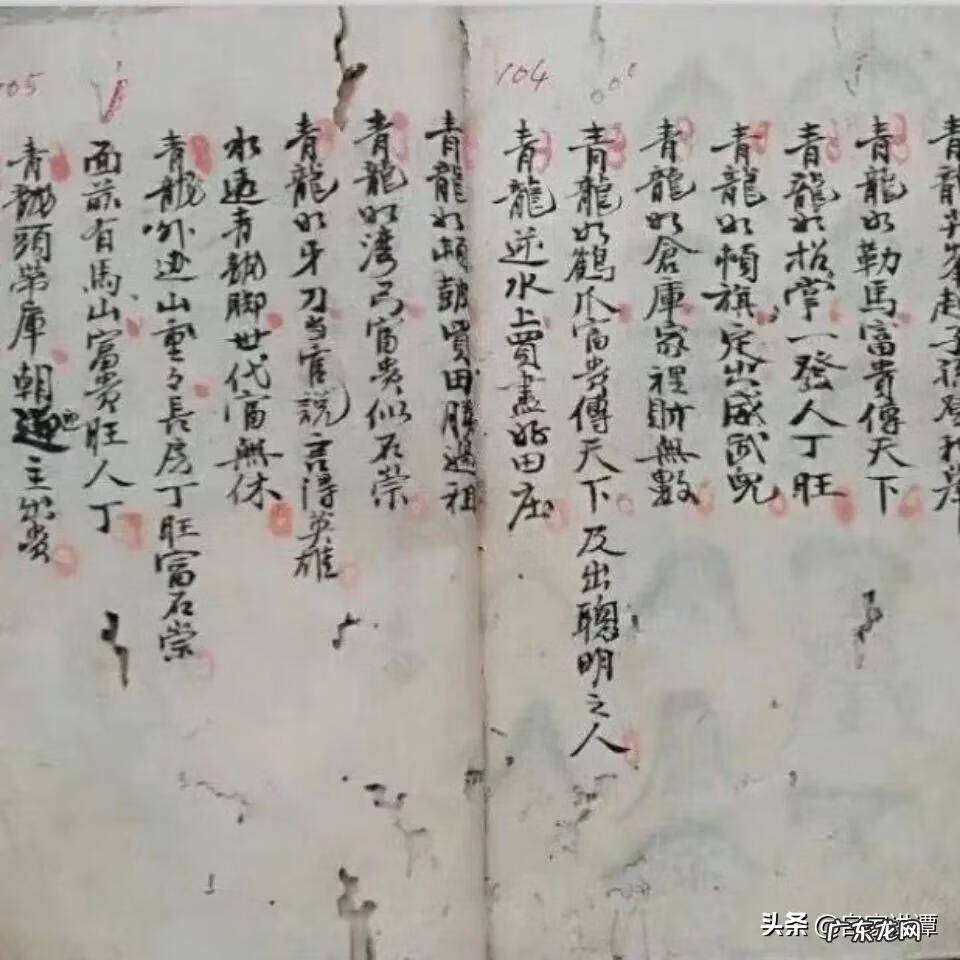 104
青龍峯起子孫登科
青龍如勒馬富貴傳天下
青龍如招掌一發人丁旺
青龍如頓旗定出威武兒
青龍如倉庫家裡財無數
青龍如鶴爪富貴傳天下及出聰明之人
青龍逆水上買盡好田庄
05
青龍如頓鼓買田勝過祖
青龍如湾弓富貴似石崇
青龍如牙刀当官説言得英雄
水遶青龍脚世代富無休
青龍外边山重々長房丁旺富石崇
面前有馬山富貴旺人丁
青龍頭帶庫朝迎主出貴
头条
广东龙网